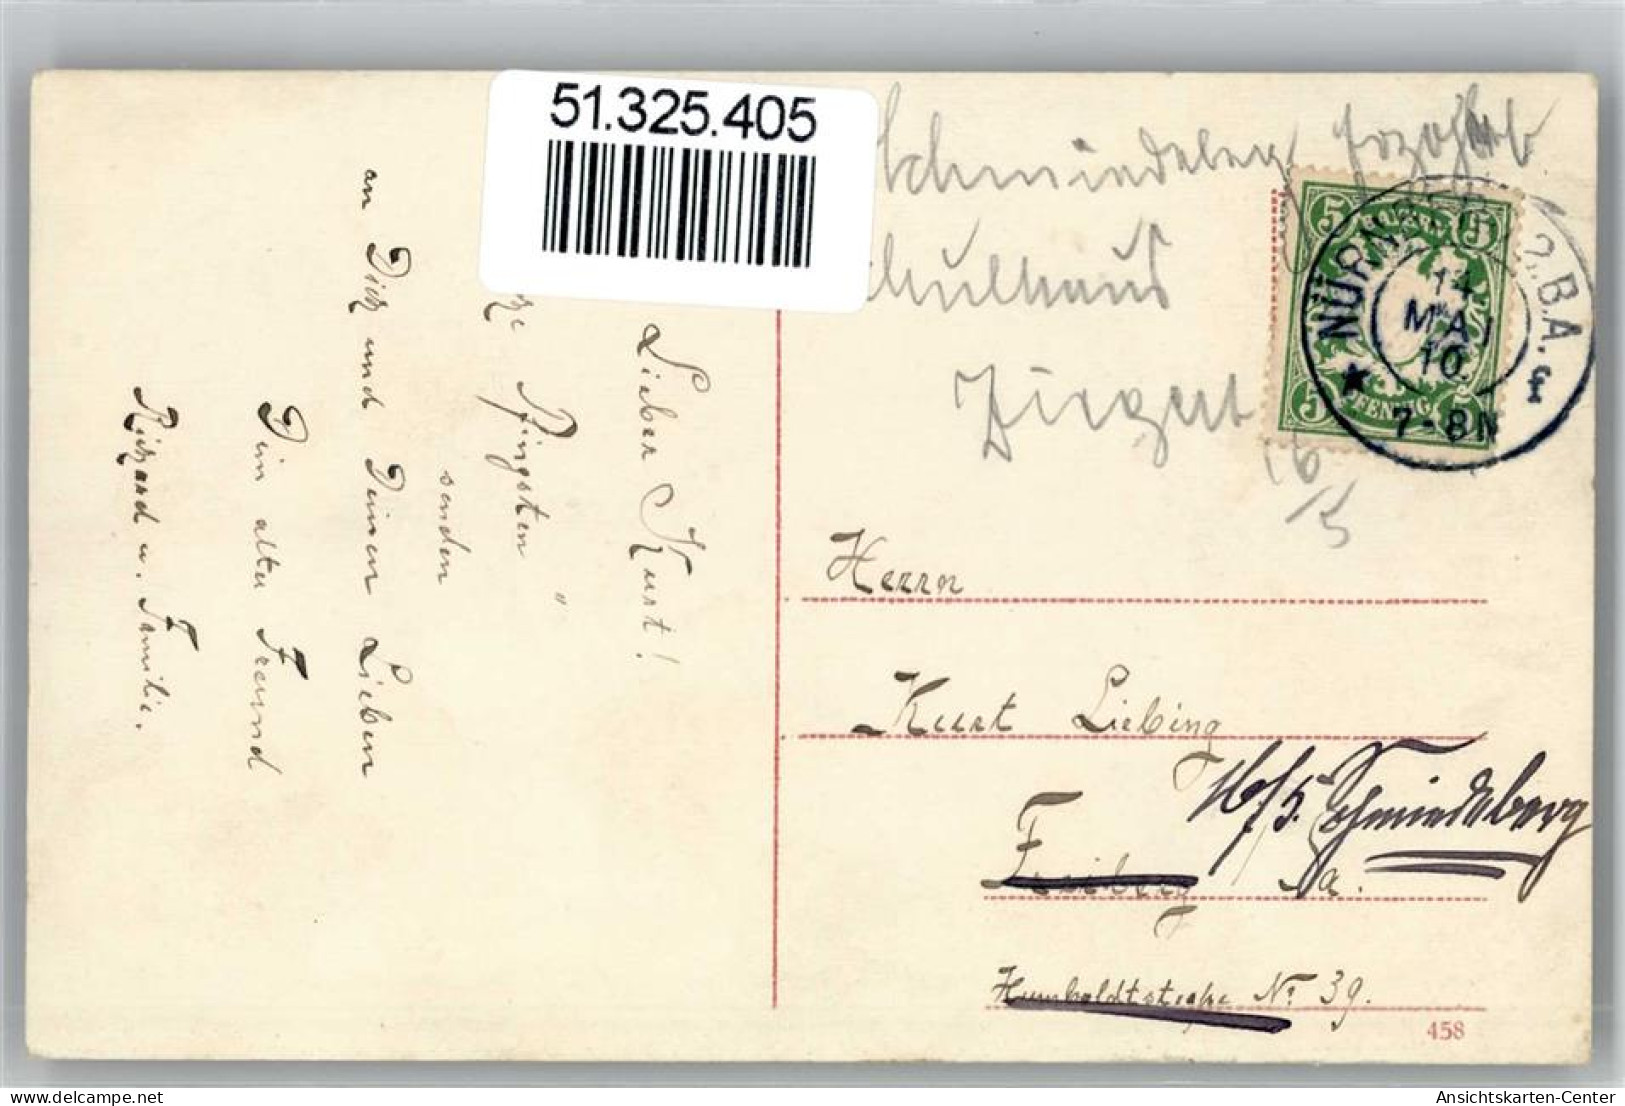 51.325.405
Schmiedeberg
Schulhaus
16/5
5 5
5
PFENNIG
NÜRNBERG 2.B.A. f
14
MAI
10.
7-8N
Lieber Kurt!
Pfingsten "
senden
an Dich und Deinen Lieben
Dein alter Freund
Richard u. Familie.
Herrn
Kurt Liebing
16/5. Schmiedeberg
Freiberg Sa.
Humboldtstraße No 39.
458
AnsichtsKarten-Center
delcampe.net